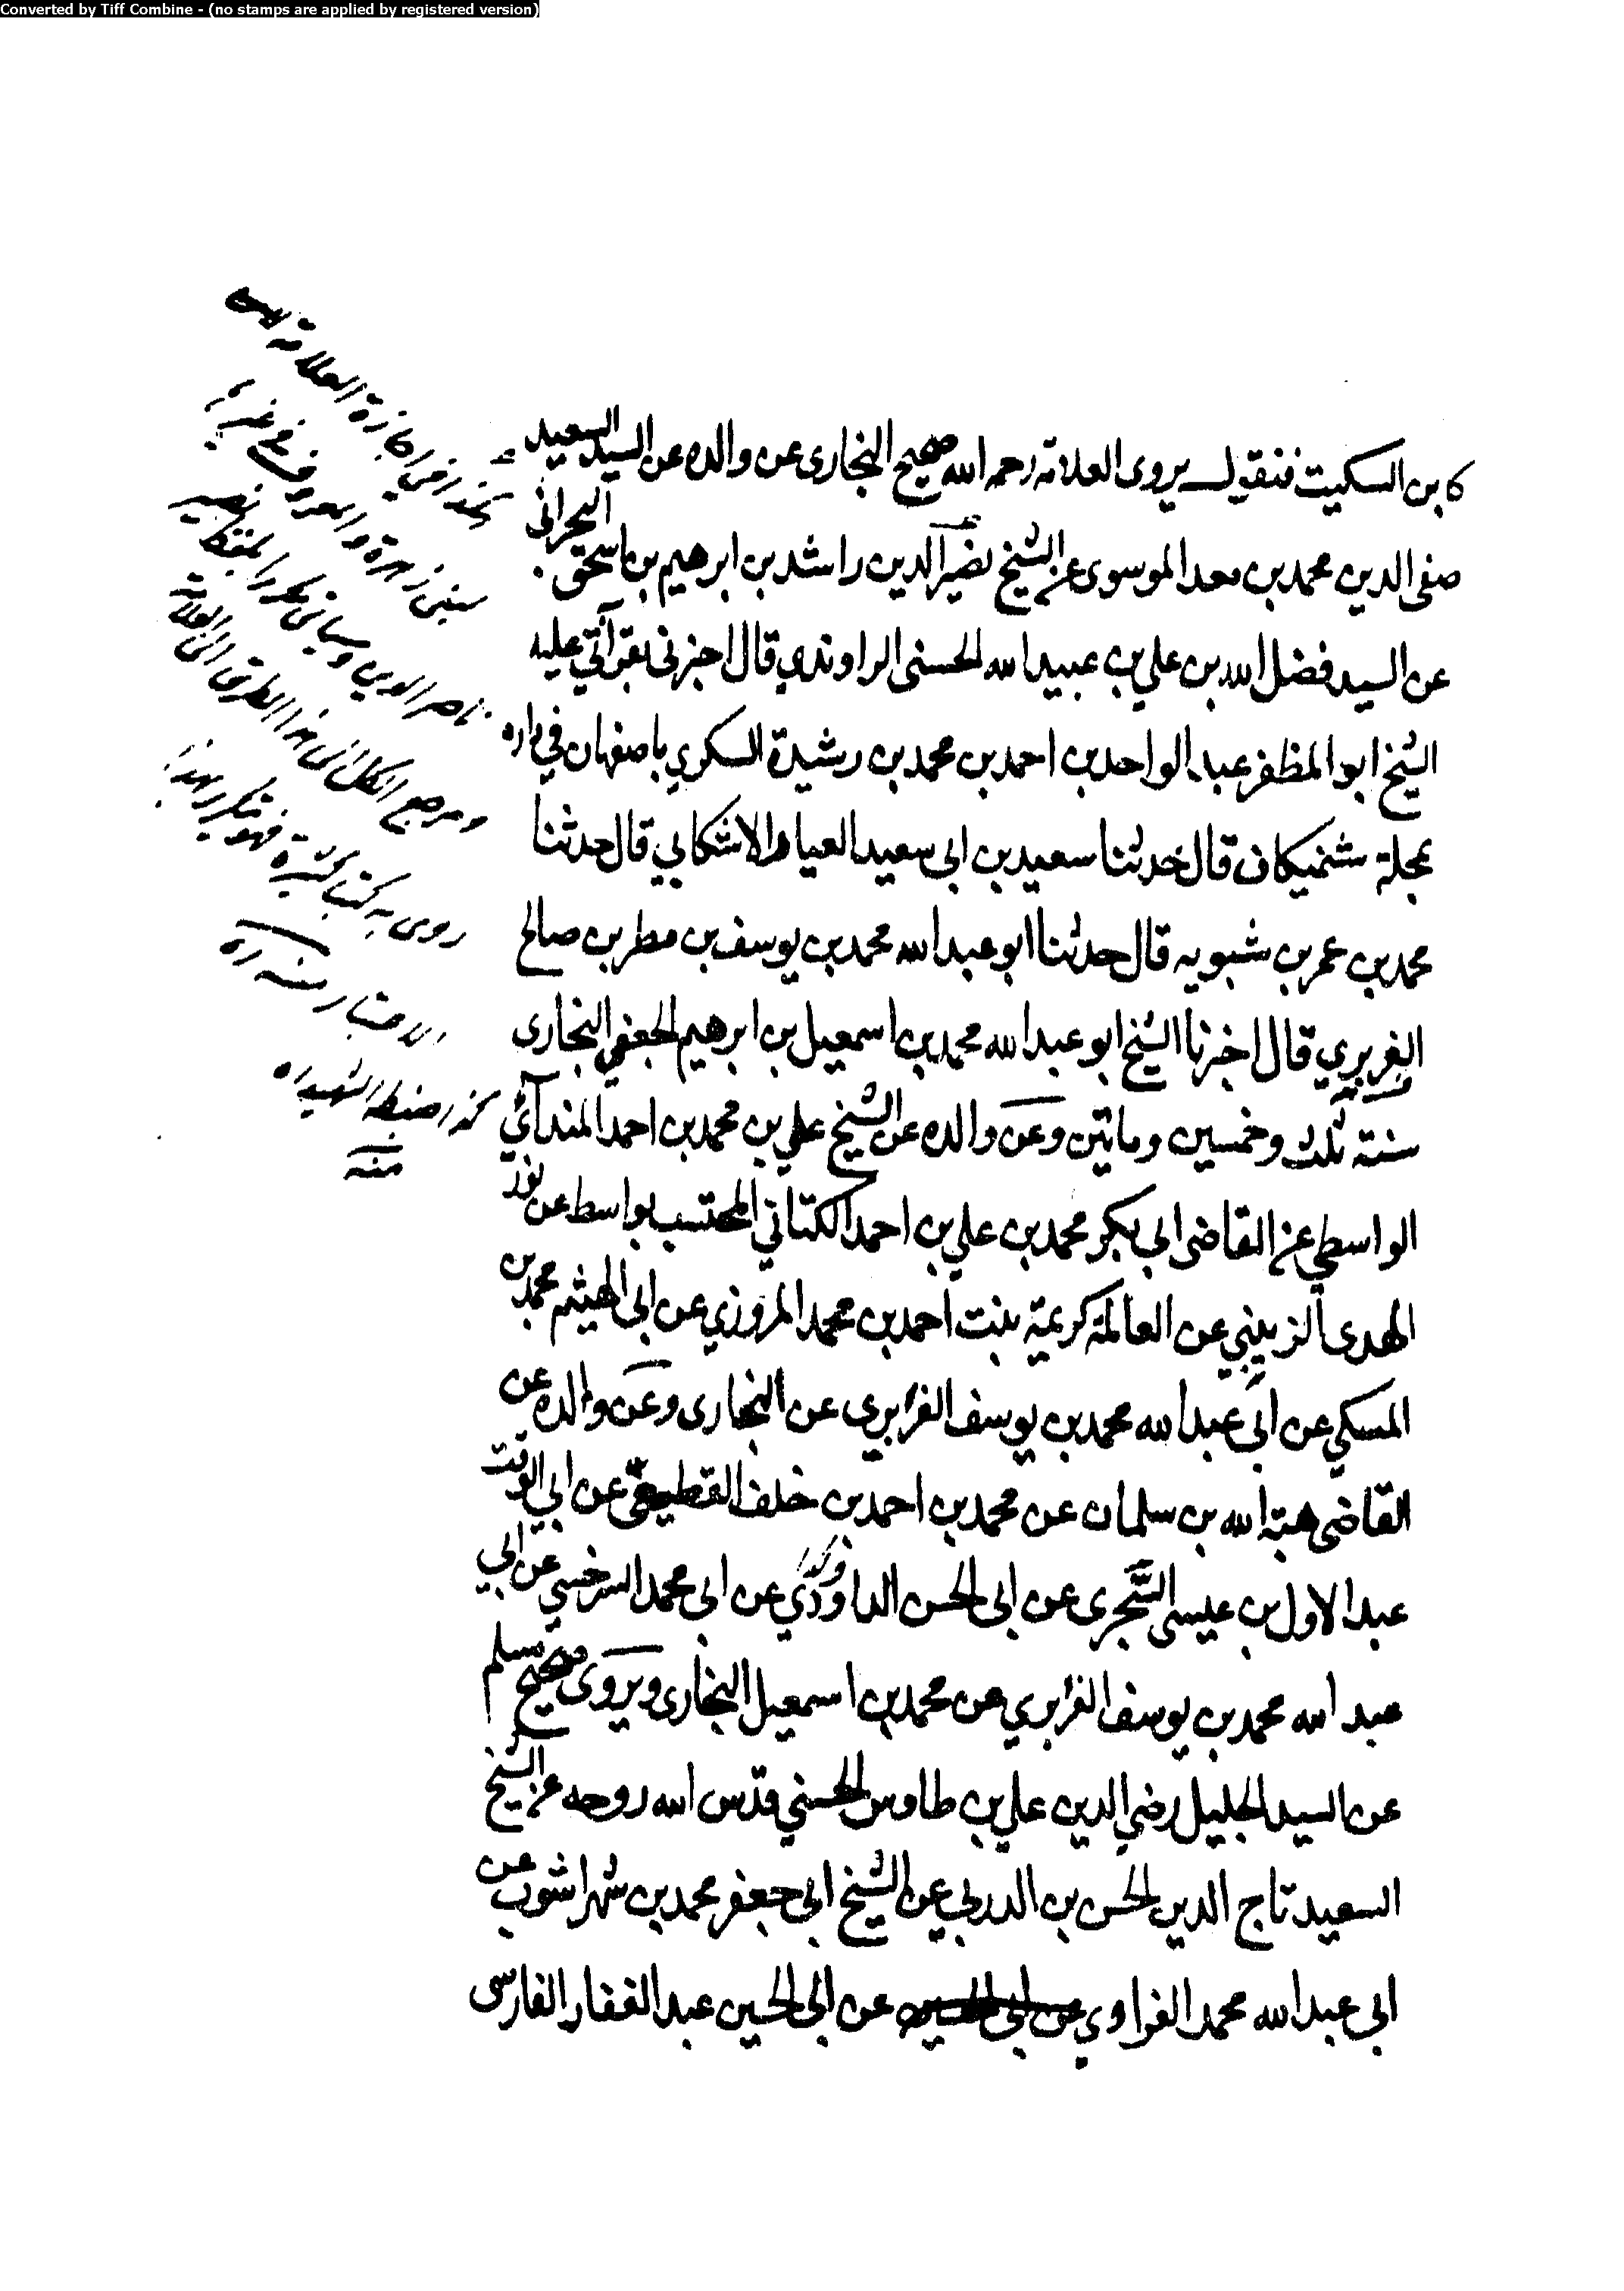 Converted by Tiff Combine - (no stamps are applied by registered version)
كابن السكيت فنقول يروى العلامة رحمه الله صحيح البخارى عن والده عن السيد السعيد
صفى الدين محمد بن معد الموسوى عن الشيخ نصير الدين راشد بن ابرهيم بن اسحق البحرانى
عن السيد فضل الله بن علي بن عبيد الله الحسنى الراوندي قال اخبرنى بقرآتي عليه
الشيخ ابو المظفر عبد الواحد بن احمد بن محمد بن رشيدة السكري باصفهان في داره
بمحلة شنميكان قال حدثنا سعيد بن ابى سعيد العيار الاشكابي قال حدثنا
محمد بن عمر بن شبويه قال حدثنا ابو عبد الله محمد بن يوسف بن مطر بن صالح
الفربري قال اخبرنا الشيخ ابو عبد الله محمد بن اسمعيل بن ابرهيم الجعفي البخارى
سنة ثلث وخمسين وماتين وعن والده عن الشيخ علي بن محمد بن احمد المندآئي
الواسطي عن القاضى ابى بكر محمد بن علي بن احمد الكتاني المحتسب بواسط عن نور
الهدى الزينبي عن العالمة كريمة بنت احمد بن محمد المروزي عن ابى الهيثم محمد بن
المسكي عن ابى عبد الله محمد بن يوسف الفربري عن البخارى وعن والده عن
القاضى هبة الله بن سلمان عن محمد بن احمد بن خلف القطيعى عن ابي الوقت
عبد الاول بن عيسى السجرى عن ابى الحسن الداوردي عن ابى محمد السرخسي عن ابي
عبد الله محمد بن يوسف الفربري عن محمد بن اسمعيل البخارى ويروى صحيح مسلم
عن السيد الجليل رضي الدين علي بن طاوس الحسني قدس الله روحه عن الشيخ
السعيد تاج الدين الحسن بن الدربي عن الشيخ ابى جعفر محمد بن شهراشوب عن
ابى عبد الله محمد الفراوي عن ابى الحسين عبد الغفار الفارسى
كذا في اجازة العلامة
بني زهرة والمعروف في غيرها
ناصر الدين وسياتي مكررا بلفظ نصير
ومرجع الكل الى هذا الطريق العلامة
روى به كتبا كثيرة فهو متكرر بهذا
الاعتبار منه ره
كذا ضبطه الشهيد ره
منه